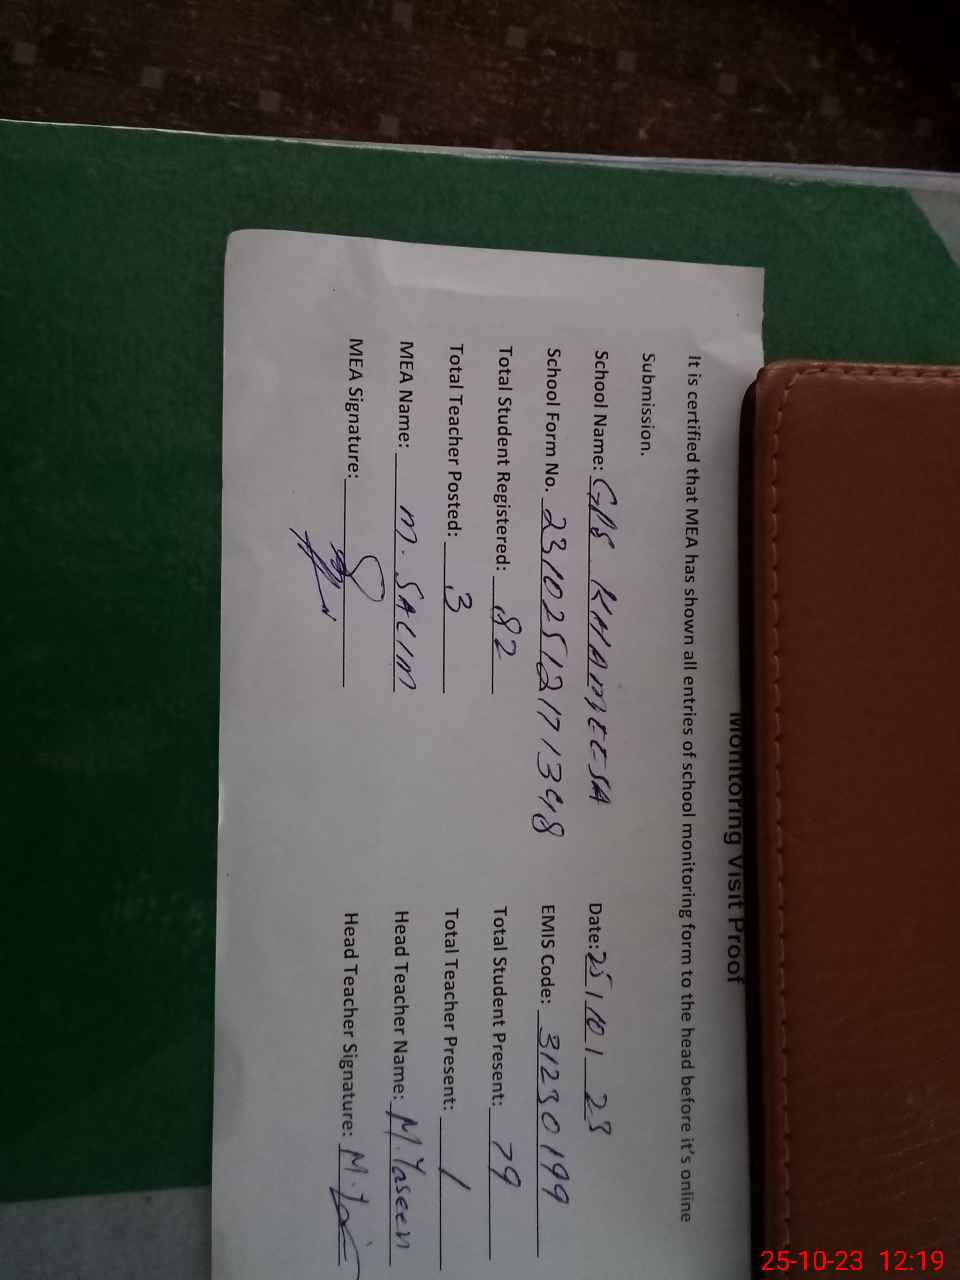 Monitoring Visit Proof
It is certified that MEA has shown all entries of school monitoring form to the head before it's online
Submission.
School Name: GPS KHAMEESA Date: 25/10/23
School Form No. 231025121713498 EMIS Code: 31230199
Total Student Registered: 82 Total Student Present: 79
Total Teacher Posted: 3 Total Teacher Present: 1
MEA Name: M. SALIM Head Teacher Name: M. Yaseen
MEA Signature: Head Teacher Signature:
25-10-23 12:19